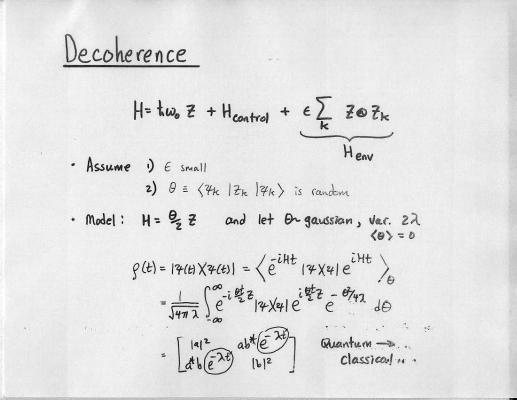 Decoherence
H = ħω₀ Z + H_control + ϵ ∑_k Z⊗Z_k
H_env
• Assume 1) ϵ small
2) θ ≡ ⟨ψ_k |Z_k |ψ_k⟩ is random
• Model: H = θ/2 Z and let θ~gaussian, var. 2λ
⟨θ⟩ = 0
ρ(t) = |ψ(t)⟩⟨ψ(t)| = ⟨e^{-iHt} |ψ⟩⟨ψ| e^{iHt}⟩_θ
= 1/√(4πλ) ∫_{-∞}^{∞} e^{-i θt/2 Z} |ψ⟩⟨ψ| e^{i θt/2 Z} e^{-θ²/4λ} dθ
= [ |a|² ab* e^{-λt} Quantum → ...
a*b e^{-λt} |b|² ] Classical ...